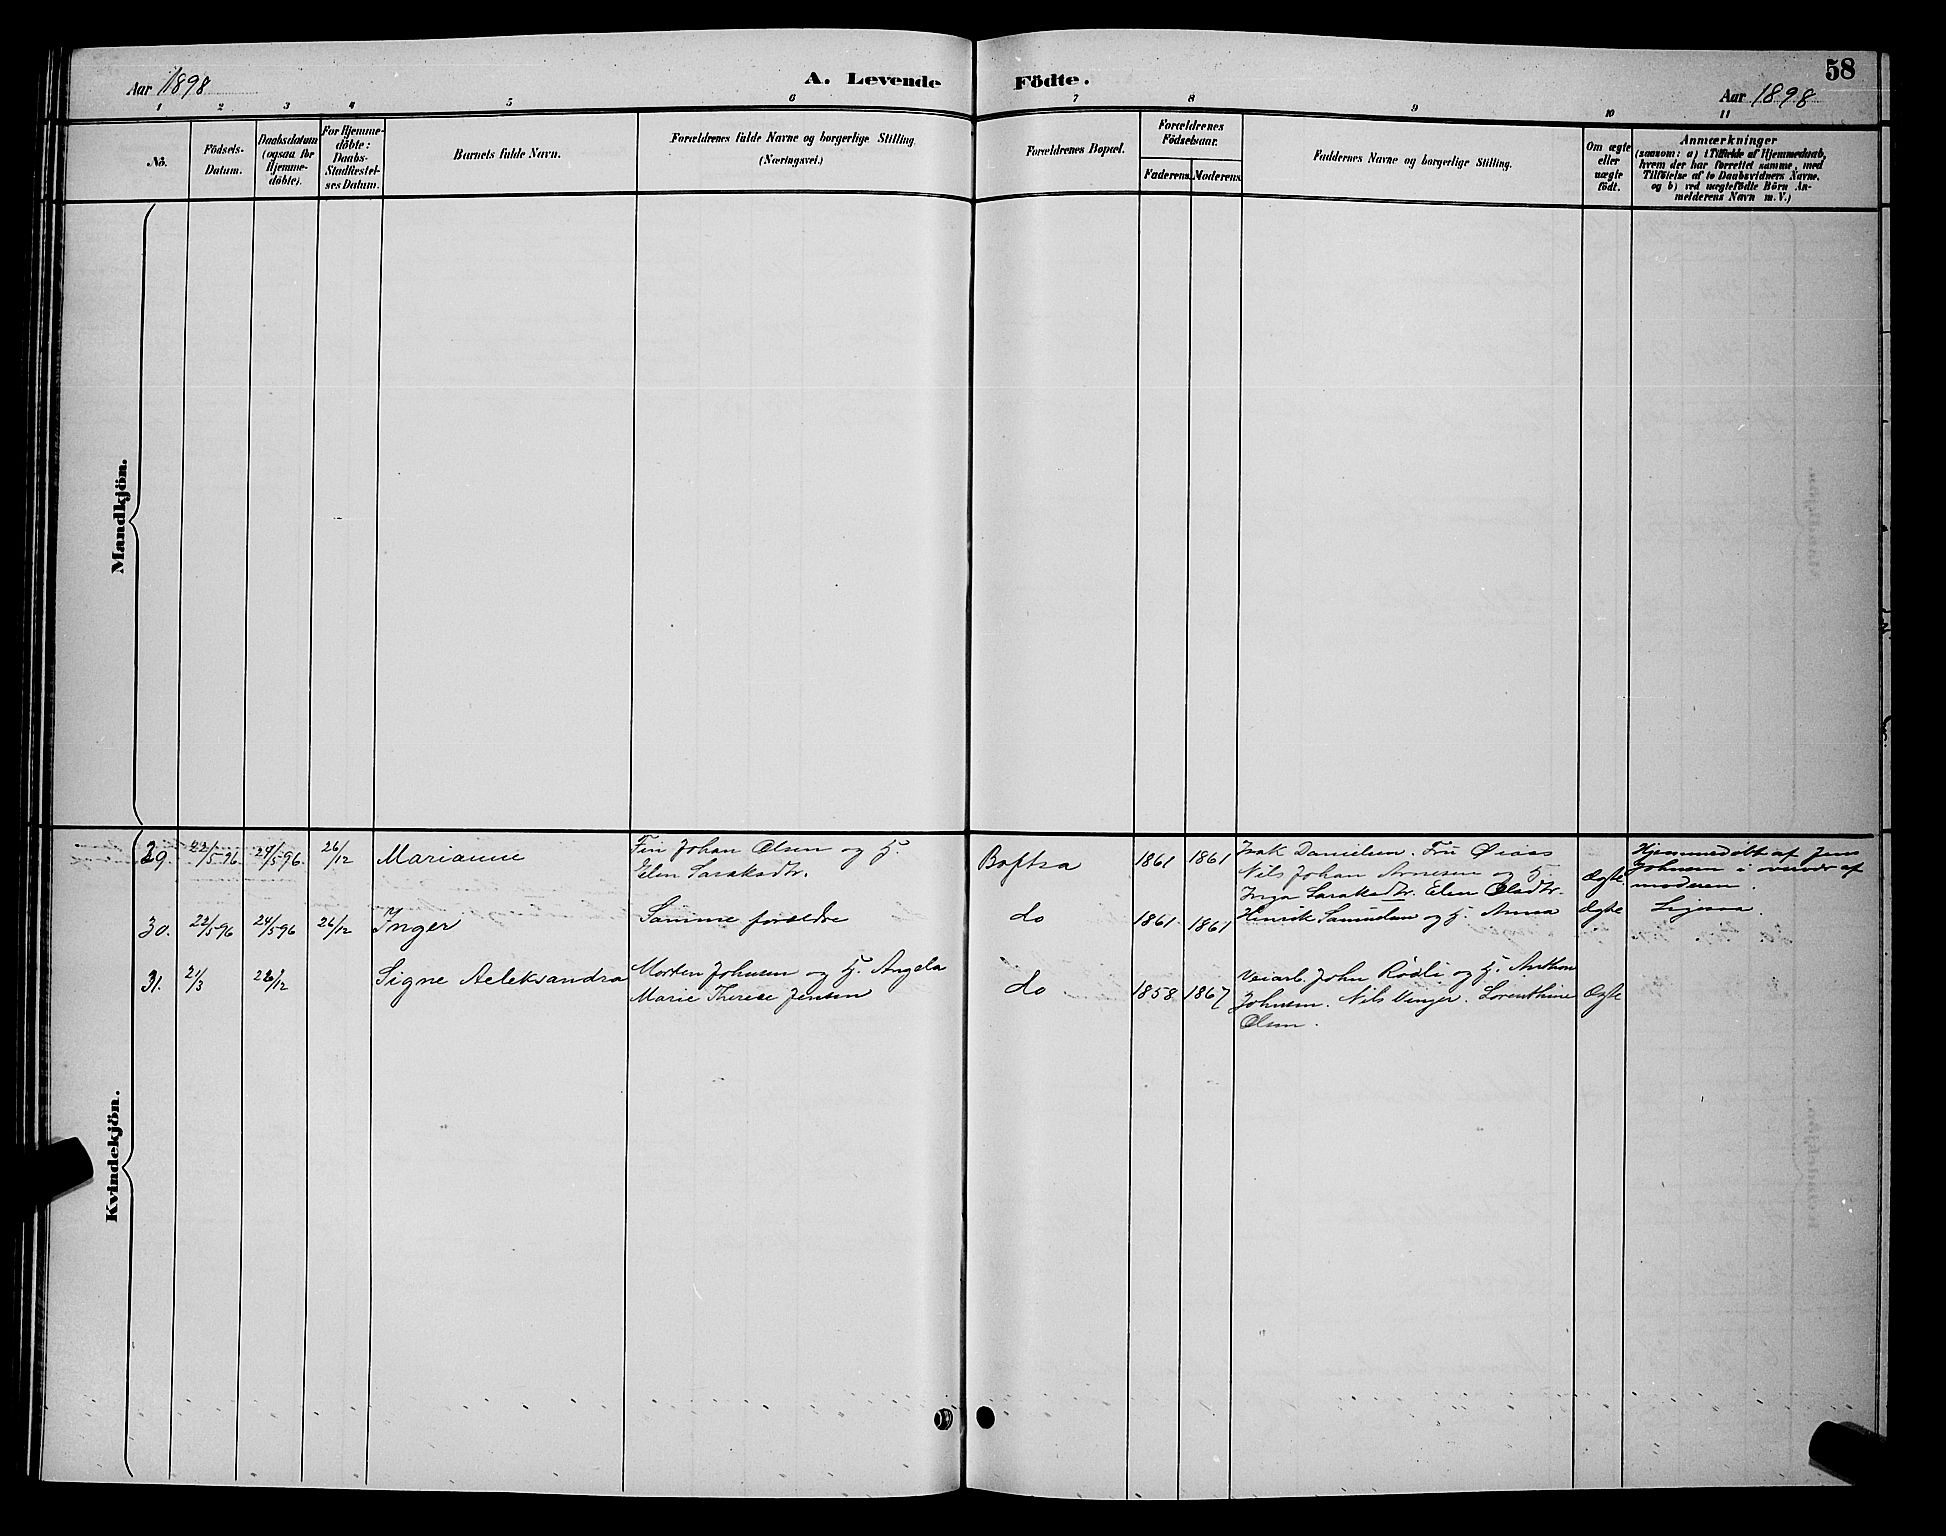 Aar 1898
A. Levende
Födte.
58
Aar 1898
1 2 3 4 5 6 7 8 9 10 11
Nö.
Födsels-
Datum.
Daabsdatum
(ogsaa for
Hjemme-
döbte).
For Hjemme-
döbte:
Daabs-
Stadfæstel-
ses Datum.
Barnets fulde Navn.
Forældrenes fulde Navne og borgerlige Stilling.
(Næringsvei.)
Forældrenes Bopæl.
Forældrenes
Födselsaar.
Faderens. Moderens.
Faddernes Navne og borgerlige Stilling.
Om ægte
eller
uægte
födt.
Anmærkninger
(saasom: a) i Tilfælde af Hjemmedaab,
hvem der har forrettet samme, med
Tilföielse af to Daabsvidners Navne,
og b) ved uægtefödte Börn An-
melderens Navn m. V.)
Mandkjön.
Kvindekjön.
29. 22/5 96 24/5 96. 26/12 Marianne
Fin Johan Olsen og H.
Elen Saraksdtr.
Boftsa 1861 1861
Isak Danielsen. Fru
Nils Johan Arnesen og H.
Inga Saraksdtr. Elen Olsdtr.
Ægte
Hjemmedöbt af Jens
Johnsen i overvær af
moderen.
30. 22/5 96 24/5 96 26/12 Inger Samme forældre do 1861. 1861 Henrik Samuelsen og H. Anna Ægte Ligesaa.
31. 21/3 26/12 Signe Aeleksandra
Morten Johnsen og H. Angela
Marie Therese Jensen
do 1858. 1867
Veiarb. John Rödli og H. Anthon
Johnsen. Nils Vinger. Lorenthine
Olsen.
Ægte